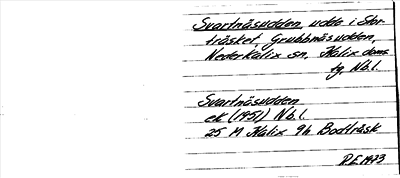 Svartnäsudden, udde i Stor-
träsket, Grubbnäsudden,
Nederkalix sn, Kalix doms
tg, Nb.l.
Svartnäsudden
ek (1951) Nb.l.
25 M Kalix 9h Bodträsk
P.E. 1973